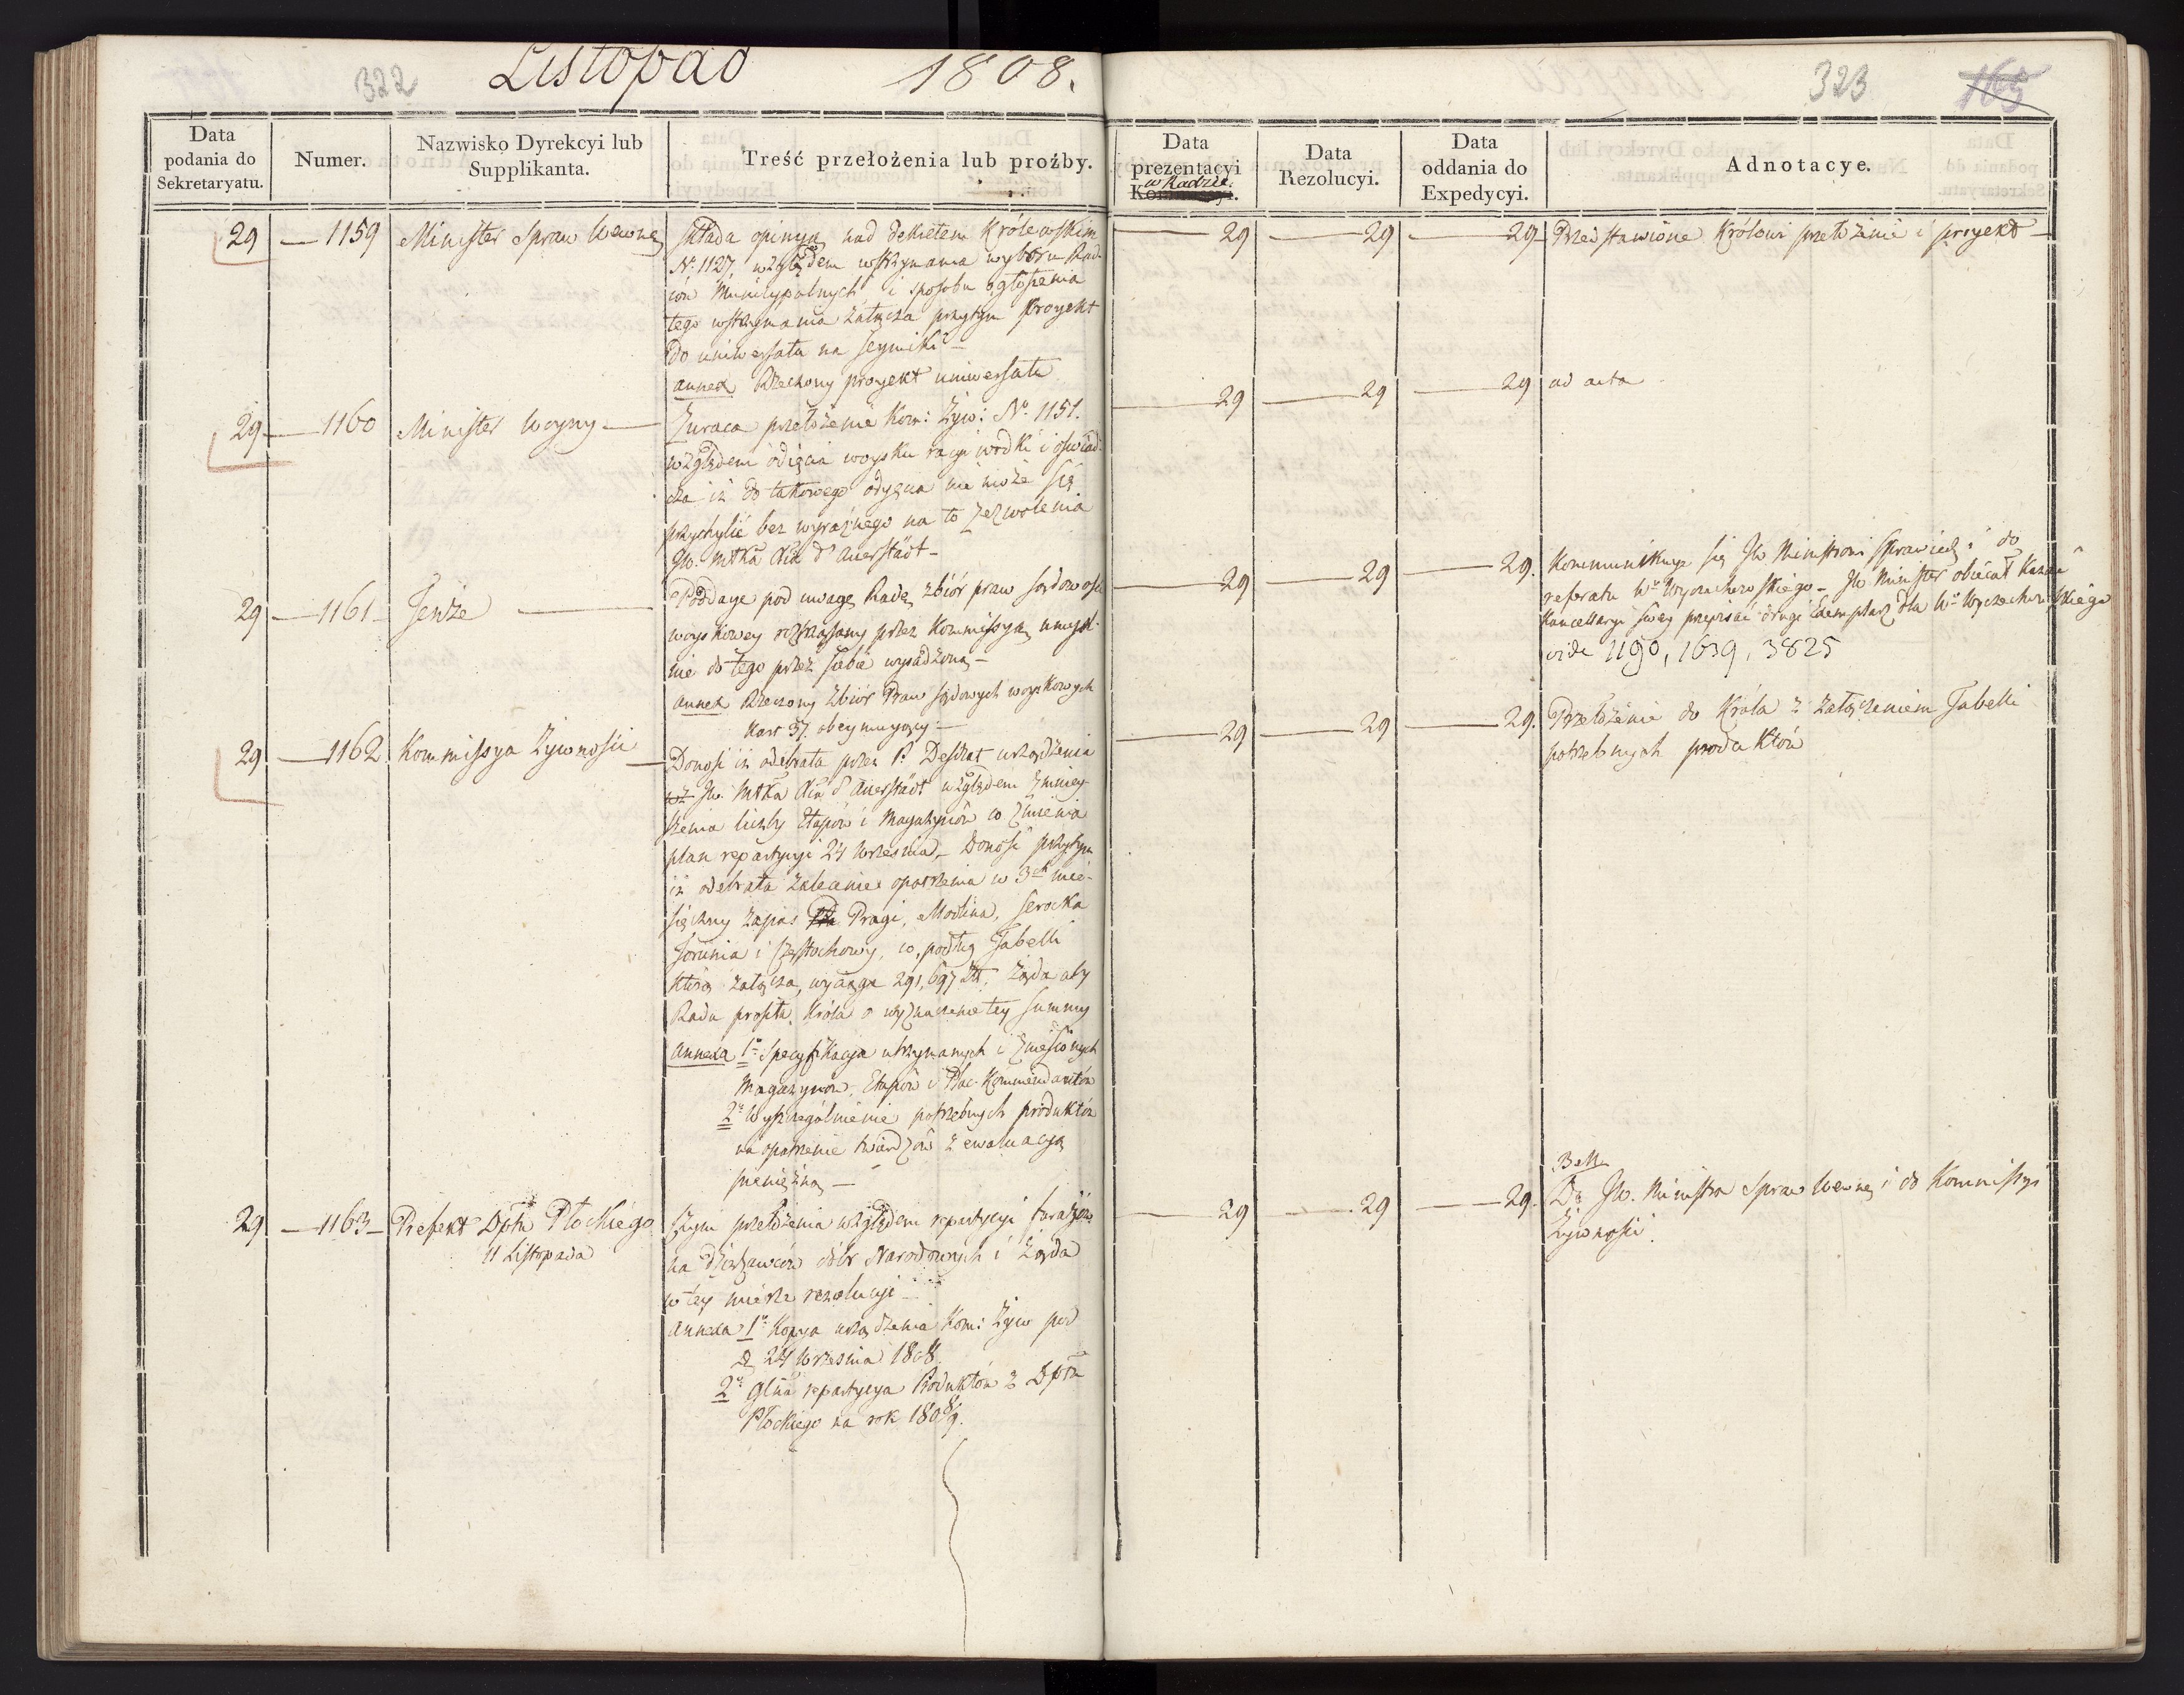 322
Listopad 1808.
323
165
Data podania do Sekretaryatu.
Numer.
Nazwisko Dyrekcyi lub Supplikanta.
Treść przełożenia lub proźby.
Data prezentacyi w Radzie.
Data Rezolucyi.
Data oddania do Expedycyi.
Adnotacye.
29 — 1159 Minister Spraw Wewnę
składa opinyą nad dekretem Królewskim
No. 1127, względem wstrzymania wyboru Rad-
ców Municypalnych i sposobu ogłoszenia
tego wstrzymania załącza przytym Proyekt
do uniwersału na seymiki —
annex Rzeczony proyekt uniwersału
29 — 29 — 29 Przedstawione Królowi przełożenie i proyekt —
29 — 1160 Minister Woyny —
Zwraca przełożenie Kom: Żyw: No. 1151.
względem odięcia woysku racyi wodki i oświad-
cza iż do takowego odięcia nie może się
przychylić bez wyraźnego na to zezwolenia
JW. Młka Xcia d'Auerstädt —
29 — 29 — 29 ad acta
29 — 1161 — Tenże —
Poddaye pod uwagę Radę zbiór praw sądowości
woyskowey roztrząsany przez Kommissyą umyśl-
nie do tego przez siebie wysadzoną —
annex Rzeczony Zbiór Praw sądowych woyskowych
kart 37. obeymuiący —
29 — 29 — 29. Kommunikuje się JW Ministrowi Sprawiedl: i do
referatu Wo Wyczechowskiego — JW Minister obiecał kazać
Kancellaryi swey przepisać drugi Exemplarz dla Wo Wyczechowskiego
vide 1190, 1639, 3825
29 — 1162 Kommissya Żywności —
Donosi iż odebrała przez P. Desirat urządzenia
JW. Młka Xcia d'Auerstädt względem zmniey-
szenia liczby Etapów i Magazynów co zmienia
plan repartycyi 24 Września — Donosi przytym
iż odebrała zalecenie opatrzenia w 3ch mie-
sięczny zapas Pragi, Modlina, Serocka
Torunia i Częstochowy, co podług Tabelli
którą załącza, wyciąga 291,697 zł. Żąda aby
Rada prosiła Króla o wyznaczenie tey summy
Annexa 1o Specyfikacya utrzymanych i zniesionych
Magazynów, Etapów i Plac-Kommendantów
2o Wyszczególnienie potrzebnych produktów
na opatrzenie twierdzów z ewaluacyą
pieniężną —
29 — 29 — 29. Przełożenie do Króla z załączeniem Tabelli
potrzebnych produktów
29 — 1163 — Prefekt Dptu Płockiego
11 Listopada
Czyni przełożenia względem repartycyi furażów
na dzierżawców dóbr Narodowych i żąda
w tey mierze rezolucyi —
Annexa 1o Kopya urządzenia Kom: Żyw pod
d. 24 Września 1808
2o Glna repartycya Produktów z Dptu
Płockiego na rok 1808/9.
29 — 29 — 29.
Do JW. Ministra Spraw Wewnę i do Kommissyi
Żywności.